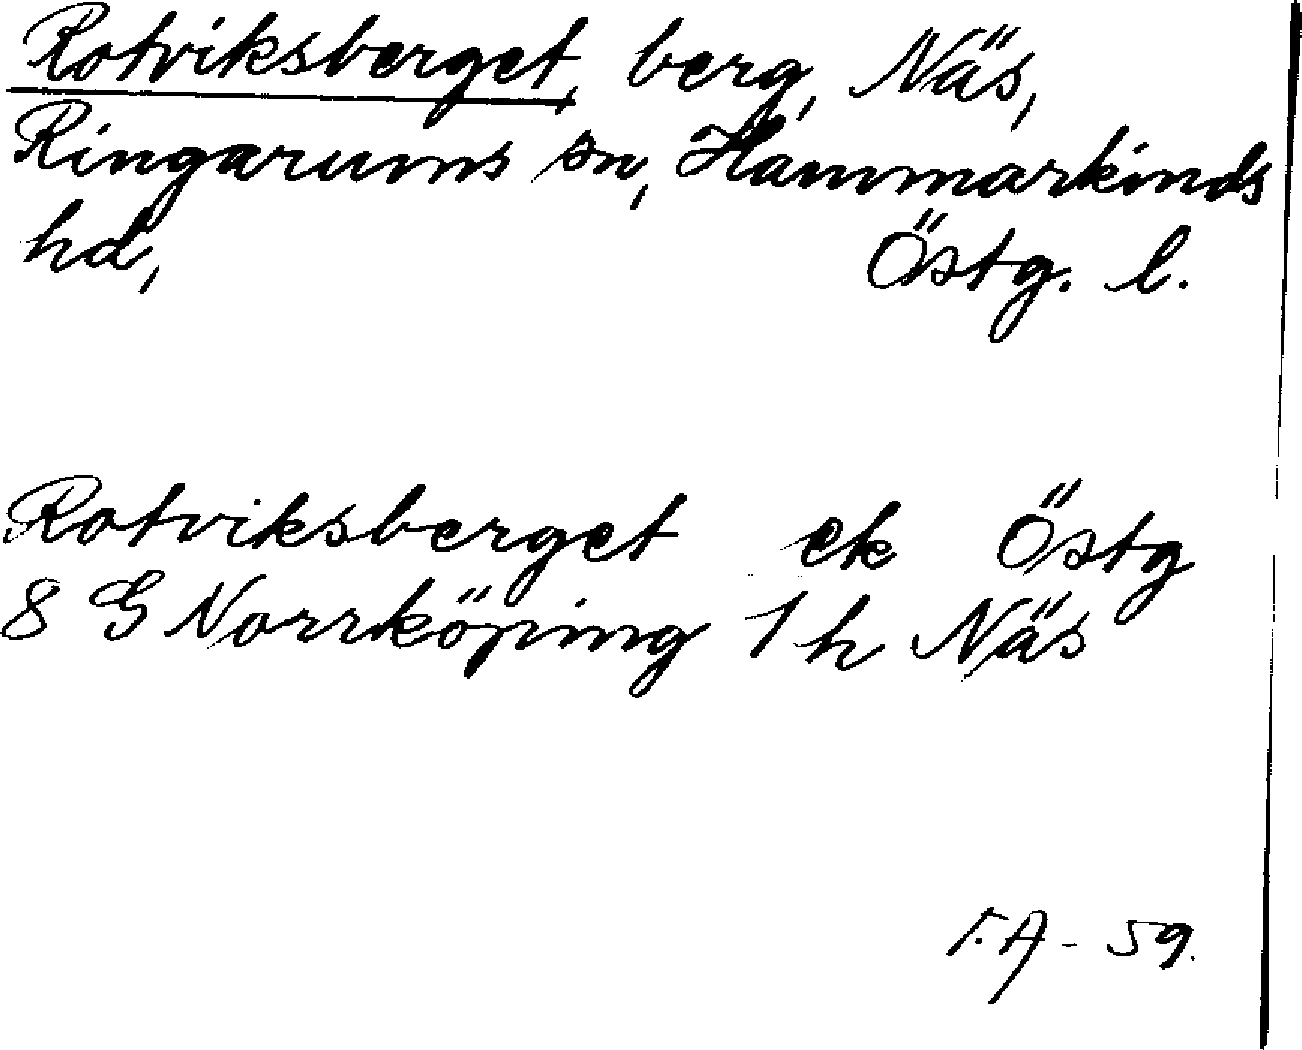 Rotviksberget, berg, Näs,
Ringarums sn, Hammarkinds
hd, Östg. l.
Rotviksberget ek Östg
8 G Norrköping 1 h Näs
F.A - 59.